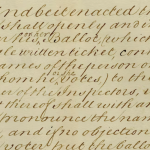 And be it enacted tha
shall openly and in
his or her Ballot, which
le written ticket, con
ames of the person or
hom he or she votes) to the
of the inspectors, w
thereof shall with an
pronounce the nam
and if no objection
voter, put the ballo